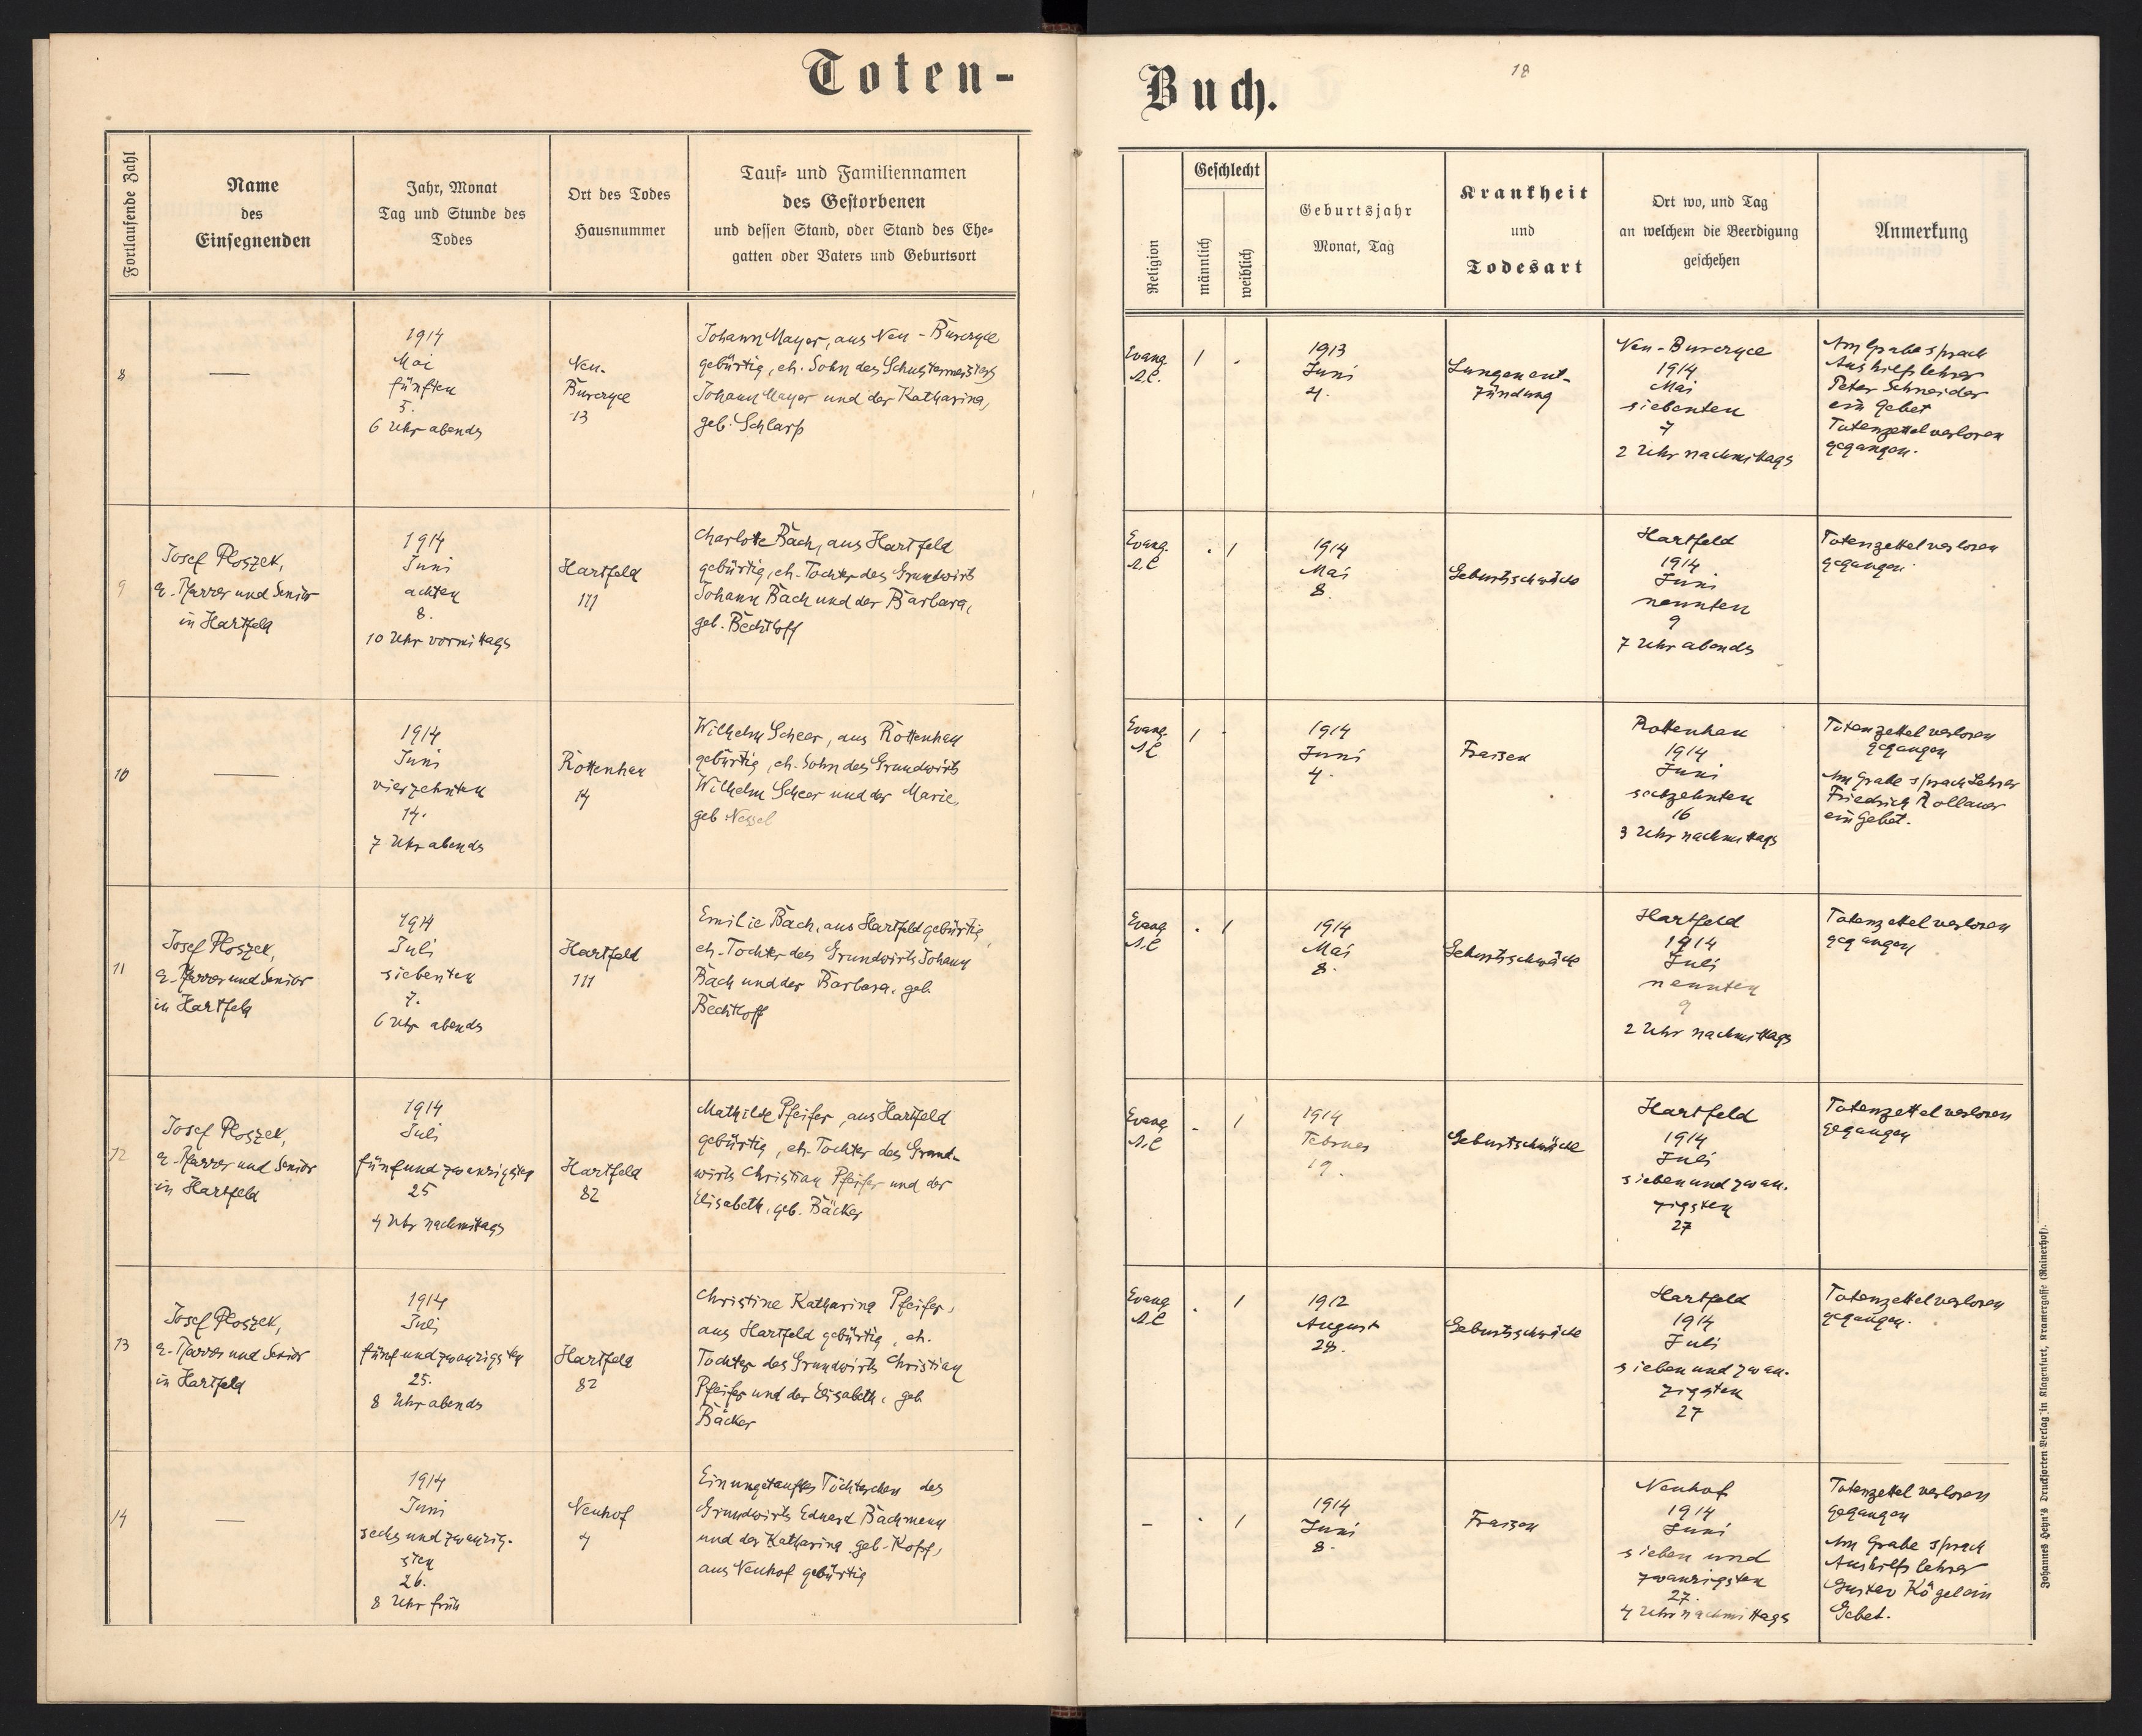 Toten-
Fortlaufende Zahl
Name
des
Einsegnenden
Jahr, Monat
Tag und Stunde des
Todes
Ort des Todes
Hausnummer
Tauf- und Familiennamen
des Gestorbenen
und dessen Stand, oder Stand des Ehe-
gatten oder Vaters und Geburtsort
8
—
1914
Mai
fünften
5.
6 Uhr abends
Neu-
Burczyce
13
Johann Mayer, aus Neu-Burczyce
gebürtig, eh. Sohn des Schustermeisters
Johann Mayer und der Katharina,
geb. Schlarp
9
Josef Ploszek,
e. Pfarrer und Senior
in Hartfeld
1914
Juni
achten
8.
10 Uhr vormittags
Hartfeld
111
Charlotte Bach, aus Hartfeld
gebürtig, eh. Tochter des Grundwirts
Johann Bach und der Barbara,
geb. Bechtloff
10
—
1914
Juni
vierzehnten
14.
7 Uhr abends
Rottenhan
14
Wilhelm Scheer, aus Rottenhan
gebürtig, eh. Sohn des Grundwirts
Wilhelm Scheer und der Marie,
geb. Nessel
11
Josef Ploszek,
e. Pfarrer und Senior
in Hartfeld
1914
Juli
siebenten
7.
6 Uhr abends
Hartfeld
111
Emilie Bach, aus Hartfeld gebürtig,
eh. Tochter des Grundwirts Johann
Bach und der Barbara, geb.
Bechtloff
12
Josef Ploszek,
e. Pfarrer und Senior
in Hartfeld
1914
Juli
fünfundzwanzigsten
25
4 Uhr nachmittags
Hartfeld
82
Mathilde Pfeifer, aus Hartfeld
gebürtig, eh. Tochter des Grund-
wirts Christian Pfeifer und der
Elisabeth, geb. Bäcker
13
Josef Ploszek,
e. Pfarrer und Senior
in Hartfeld
1914
Juli
fünfundzwanzigsten
25.
8 Uhr abends
Hartfeld
82
Christine Katharina Pfeifer,
aus Hartfeld gebürtig, eh.
Tochter des Grundwirts Christian
Pfeifer und der Elisabeth, geb.
Bäcker
14
—
1914
Juni
sechsundzwanzig-
sten
26.
8 Uhr früh
Neuhof
4
Ein ungetauftes Töchterchen des
Grundwirts Eduard Bachmann
und der Katharina geb. Kopf,
aus Neuhof gebürtig
Buch.
18
Religion
Geschlecht
männlich
weiblich
Geburtsjahr
Monat, Tag
Krankheit
und
Todesart
Ort wo, und Tag
an welchem die Beerdigung
geschehen
Anmerkung
Evang.
A.C.
1 -
1913
Juni
4.
Lungenent-
zündung
Neu-Burczyce
1914
Mai
siebenten
7
2 Uhr nachmittags
Am Grabe sprach
Aushilfslehrer
Peter Schneider
ein Gebet
Totenzettel verloren
gegangen.
Evang.
A.C
. 1
1914
Mai
8.
Geburtsschwäche
Hartfeld
1914
Juni
neunten
9
7 Uhr abends
Totenzettel verloren
gegangen
Evang.
A.C
1 -
1914
Juni
4.
Fraisen
Rottenhan
1914
Juni
sechzehnten
16
3 Uhr nachmittags
Totenzettel verloren
gegangen
Am Grabe sprach Lehrer
Friedrich Rollauer
ein Gebet.
Evang.
A.C
. 1
1914
Mai
8.
Geburtsschwäche
Hartfeld
1914
Juli
neunten
9
2 Uhr nachmittags
Totenzettel verloren
gegangen
Evang.
A.C
- 1
1914
Februar
19.
Geburtsschwäche
Hartfeld
1914
Juli
siebenundzwan-
zigsten
27
Totenzettel verloren
gegangen
Evang
A.C
. 1
1912
August
28.
Geburtsschwäche
Hartfeld
1914
Juli
siebenundzwan-
zigsten
27
Totenzettel verloren
gegangen.
-
. 1
1914
Juni
8.
Fraisen
Neuhof
1914
Juni
sieben und
zwanzigsten
27.
4 Uhr nachmittags
Totenzettel verloren
gegangen
Am Grabe sprach
Aushilfslehrer
Gustav Kögel ein
Gebet.
Johannes Heyn's Drucksorten Verlag in Klagenfurt, Kramergasse (Rainerhof).